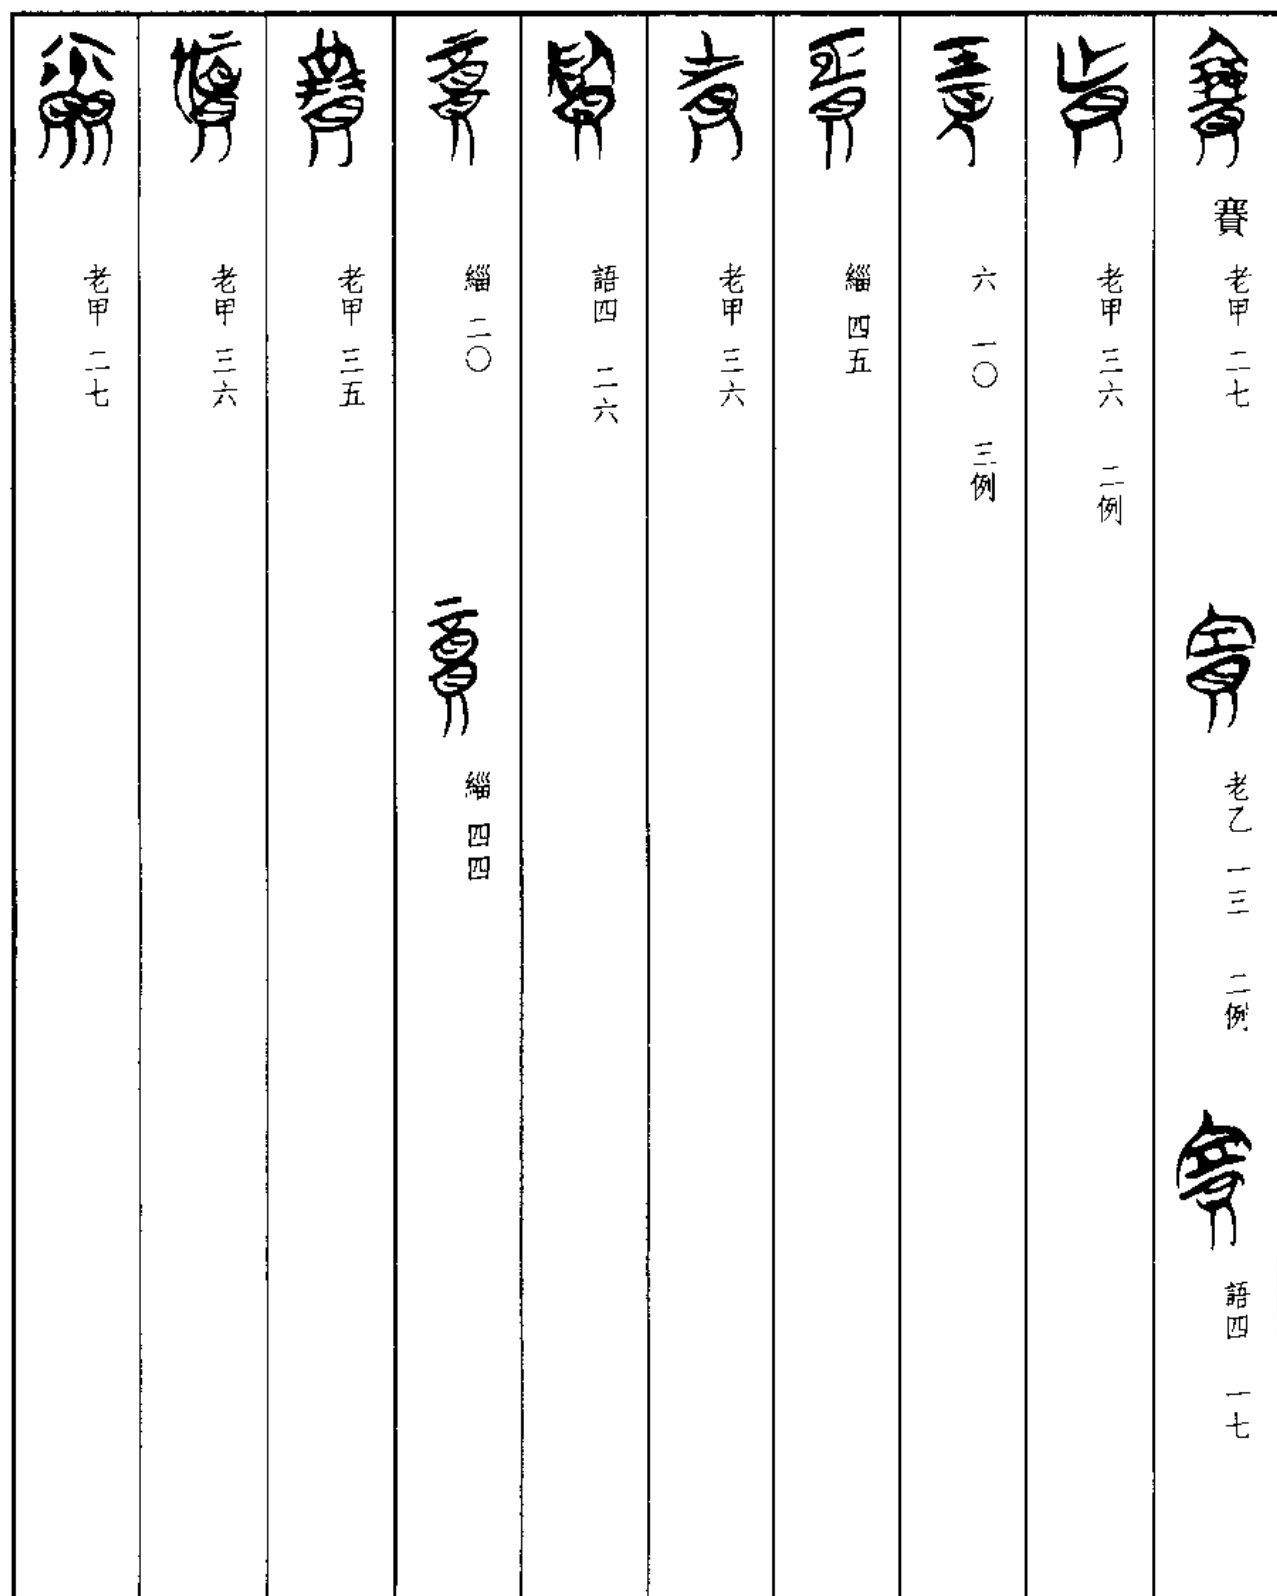 賽 老甲 二七 老乙 一三 二例 語四 一七
老甲 三六 二例
六 一〇 三例
緇 四五
老甲 三六
語四 二六
緇 二〇 緇 四四
老甲 三五
老甲 三六
老甲 二七